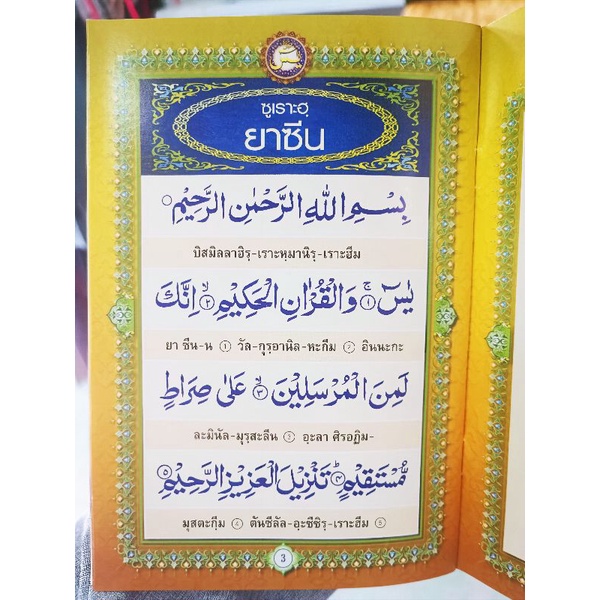 يس
ซูเราะฮฺ
ยาซีน
بِسْمِ اللهِ الرَّحْمٰنِ الرَّحِيْمِ
บิสมิลลาฮิรฺ-เราะหฺมานิรฺ-เราะฮีม
يٰسٓ ۚ ١ وَالْقُرْاٰنِ الْحَكِيْمِ ۙ ٢ اِنَّكَ
ยา ซีน-น ١ วัล-กุรฺอานิล-หะกีม ٢ อินนะกะ
لَمِنَ الْمُرْسَلِيْنَ ۙ ٣ عَلٰى صِرَاطٍ
ละมินัล-มุรฺสะลีน ٣ อะลา ศิรอฏิม-
مُّسْتَقِيْمٍ ۗ ٤ تَنْزِيْلَ الْعَزِيْزِ الرَّحِيْمِ ۙ ٥
มุสตะกีฺม ٤ ตันซีลัล-อะซีซิรฺ-เราะฮีม ٥
3